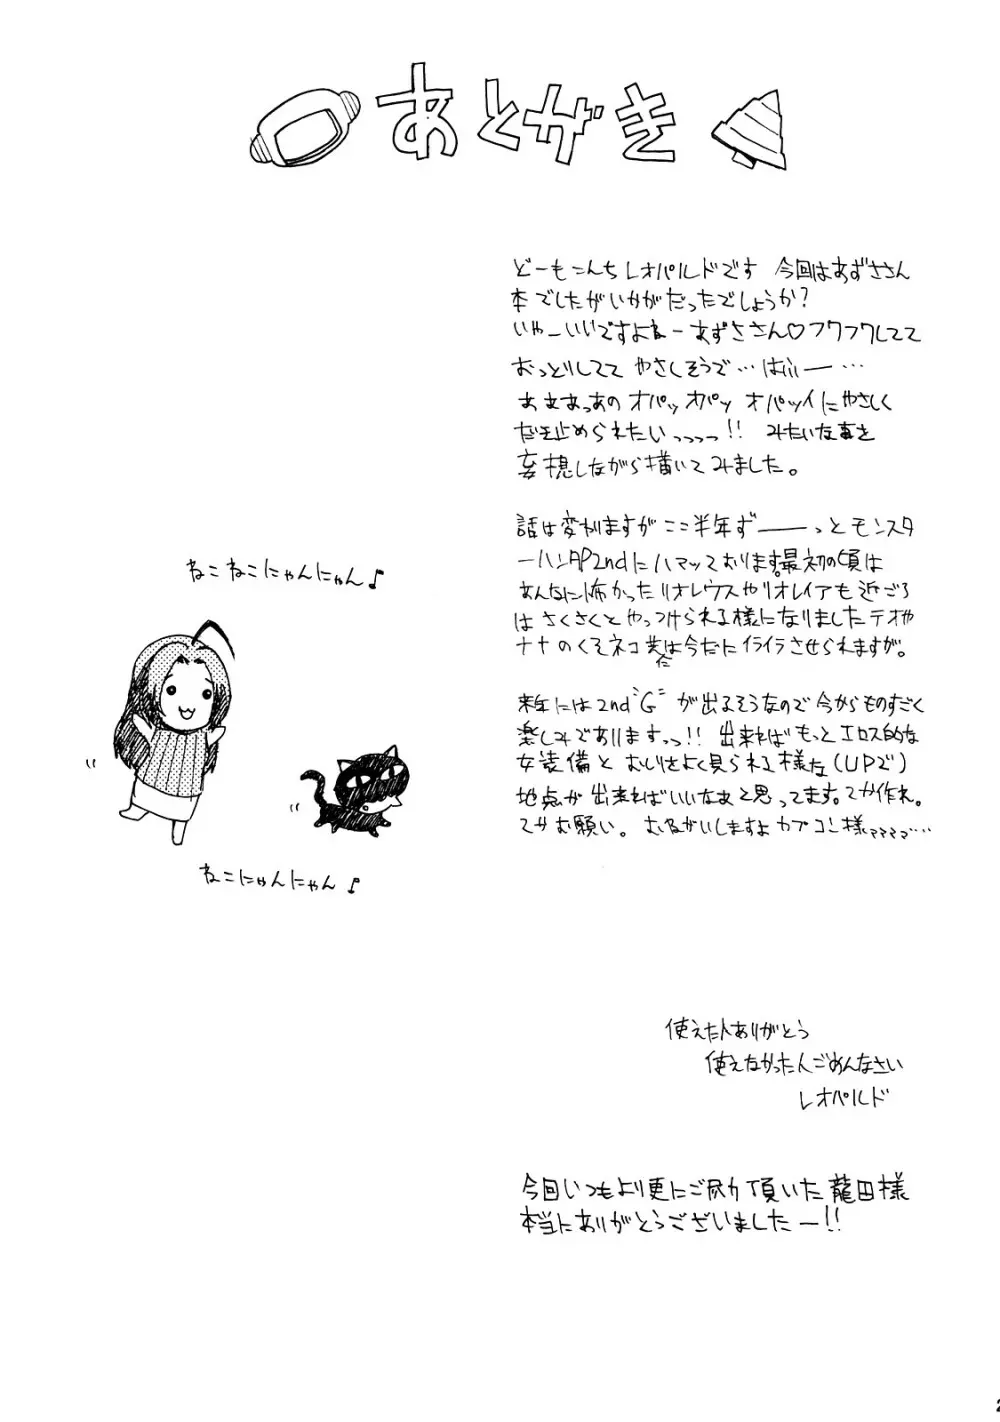 あとがき
どーもこんちレオパルドです 今回はあずささん
本でしたがいかがだったでしょうか?
いやーいいですよねーあずささん♡フワフワしてて
おっとりしてて やさしそうで…はふぅー…
あぁまぁっあの オパッオパッ オパッイにやさしく
だき止められたいっっっっ!! みたいな事を
妄想しながら描いてみました。
話は変わりますがここ半年ずーーーっとモンスタ
ーハンタP2ndにハマッております。最初の頃は
あんなに怖かったリオレウスやリオレイアも近ごろ
はさくさくとやっつけられる様になりましたテオや
ナナのくそネコ共は今だにイライラさせられますが。
だ
来年には2nd"G"が出るそうなので今からものすごく
楽しみでありますっっ!! 出来ればもっとエロス的な
女装備と おしりをよく見られる様な(UPで)
地点が出来ればいいなぁと思ってます。てか作れ。
てかお願い。おねがいしますよカプコン様ァァァァ…
ねこねこにゃんにゃん♪
ねこにゃんにゃん♪
使えた人ありがとう
使えなかった人ごめんなさい
レオパルド
今回いつもより更にご尽力頂いた龍田様
本当にありがとうございましたー!!
2